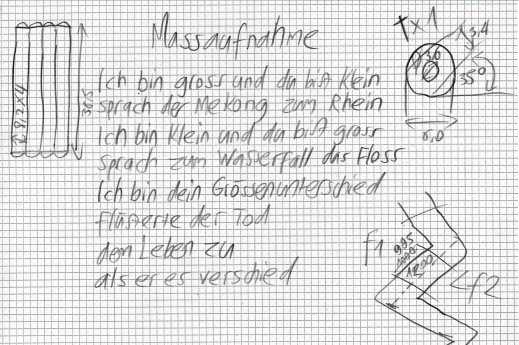 Massaufnahme
Ich bin gross und du bist klein
sprach der Mekong zum Rhein
Ich bin klein und du bist gross
sprach zum Wasserfall das Floss
Ich bin dein Grössenunterschied
flüsterte der Tod
dem Leben zu
als er es verschied
365
8,2x4
x1
3,4
35°
6,0
f1
995
1000
1200
f2